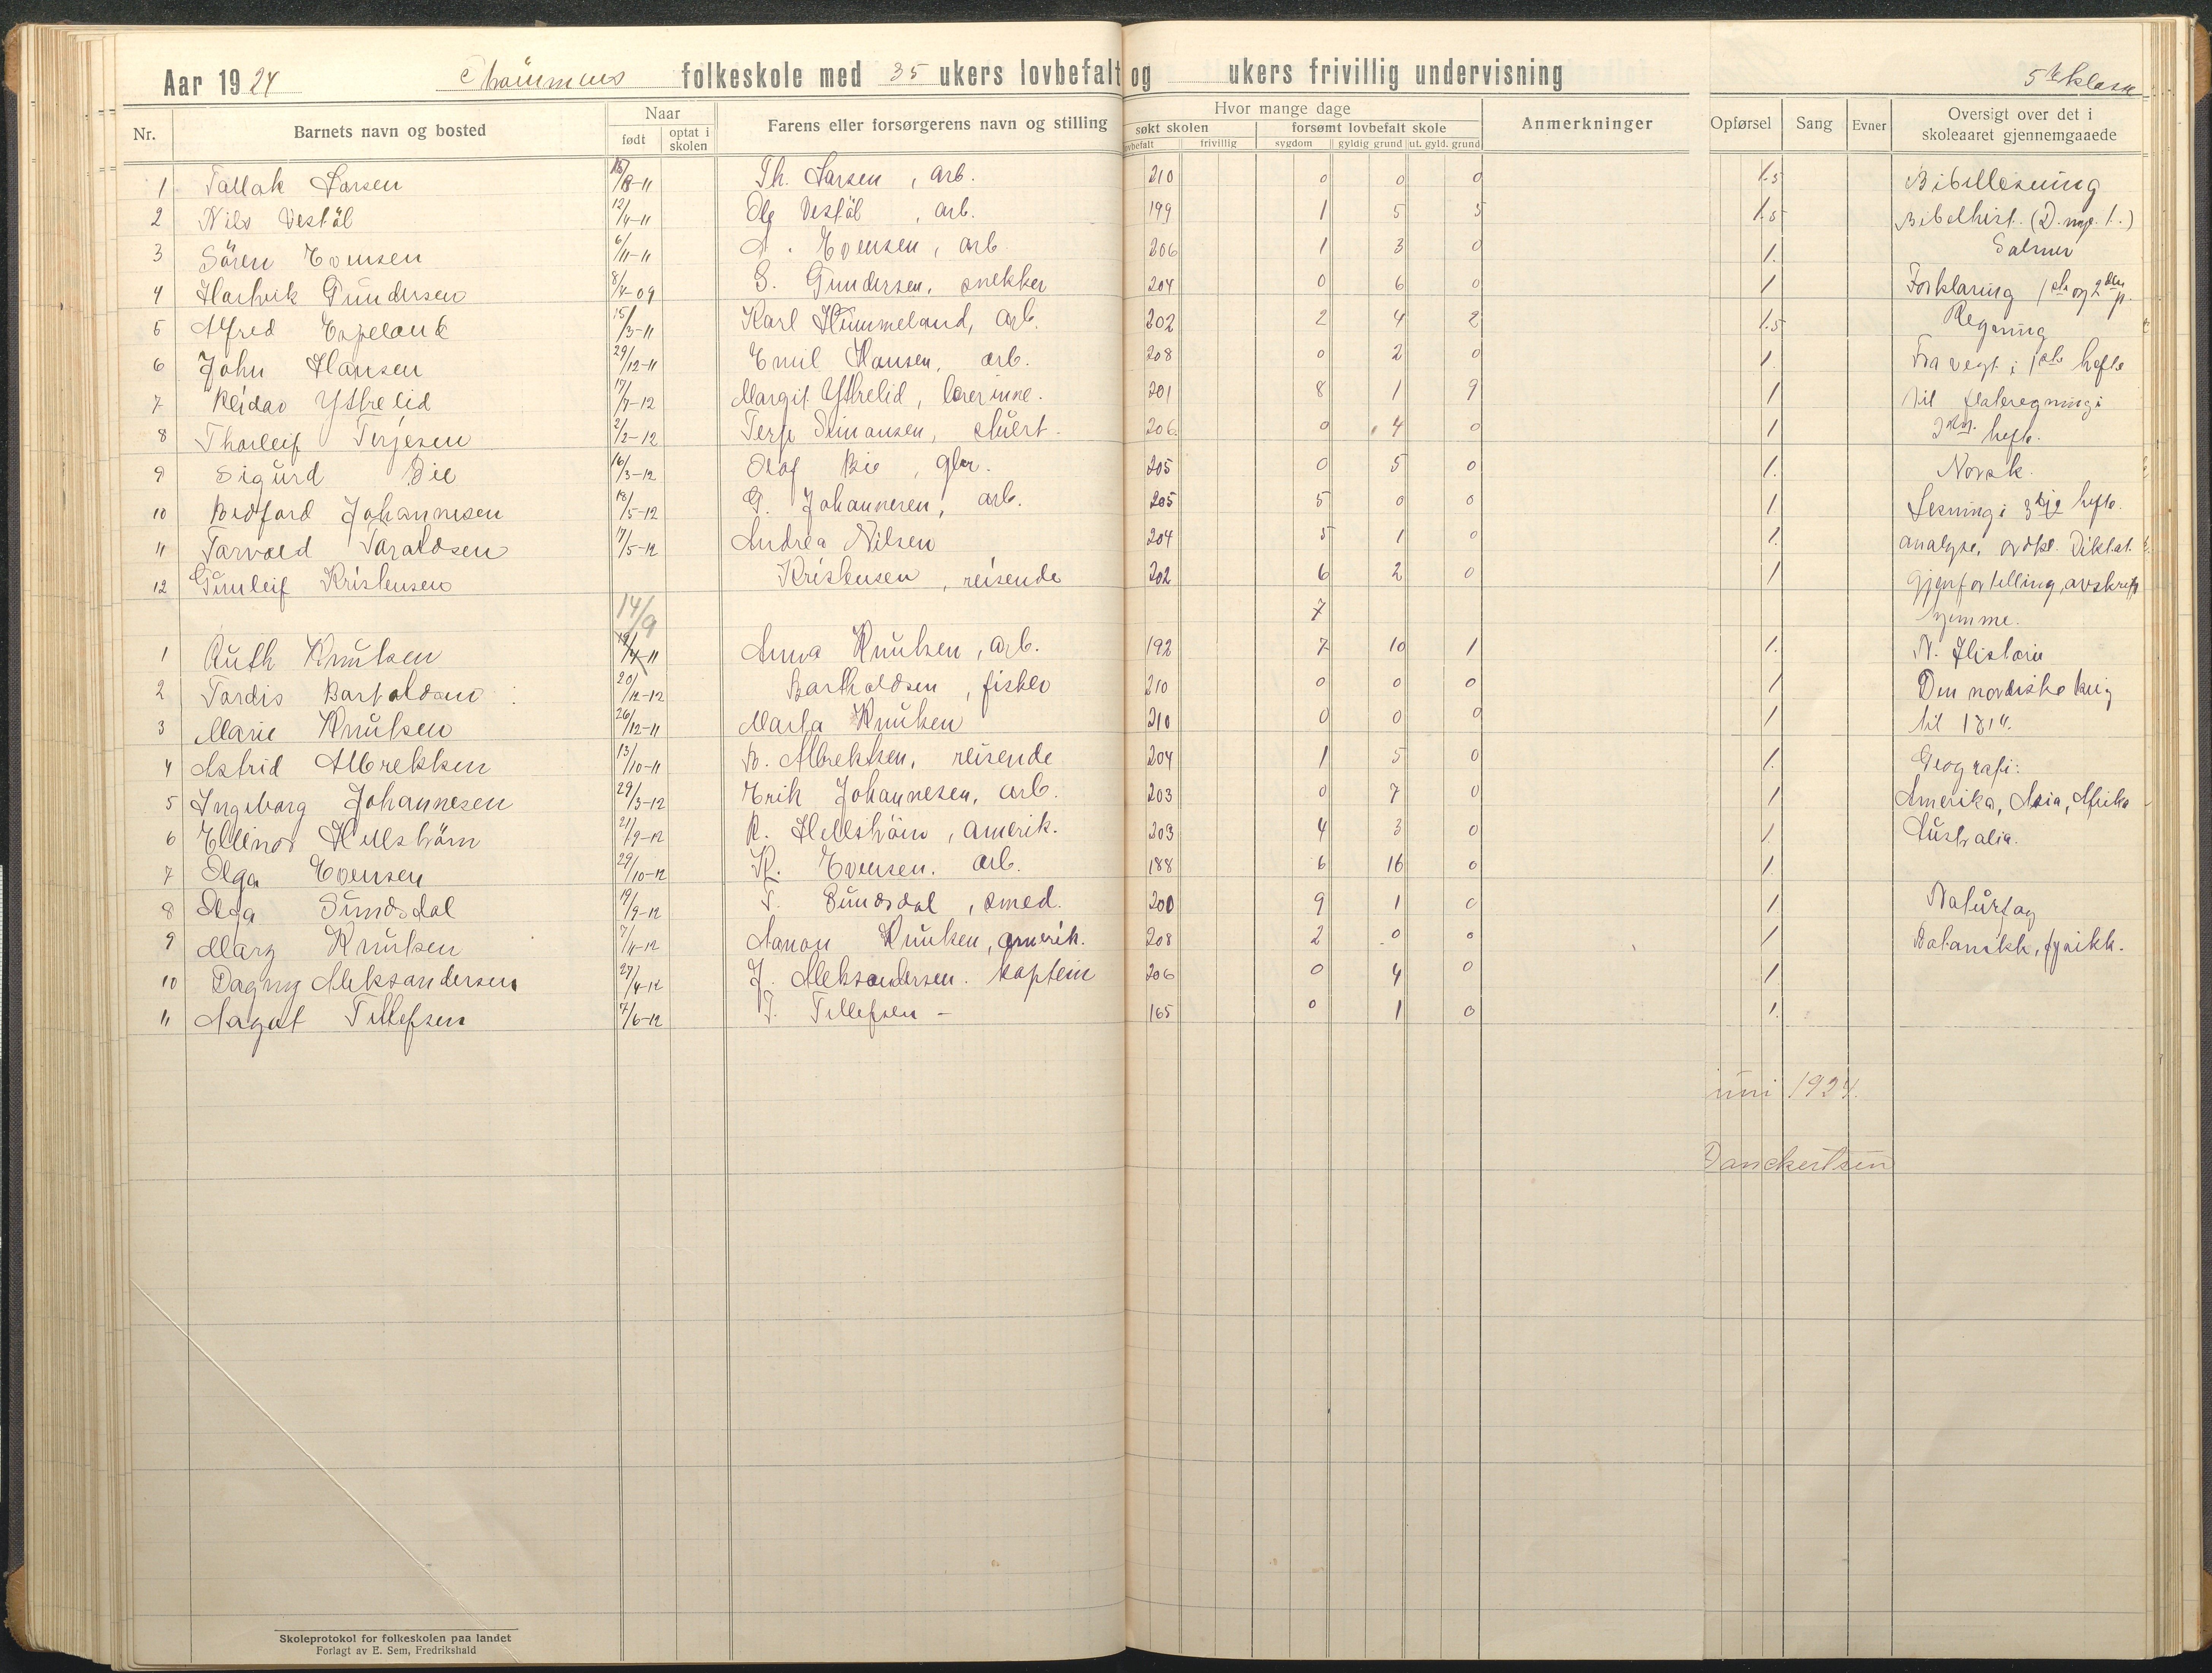 Aar 1924 folkeskole med 35 ukers lovbefalt og ukers frivillig undervisning 5te klasse
Nr. Barnets navn og bosted Naar født optat i skolen Farens eller forsørgerens navn og stilling Hvor mange dage søkt skolen lovbefalt frivillig forsømt lovbefalt skole sygdom gyldig grund ut. gyld. grund Anmerkninger Opførsel Sang Evner Oversigt over det i skoleaaret gjennemgaaede
1 Tallak Larsen 18/8-11 Th. Larsen, arb. 210 0 0 0 1.5 Bibellesning
2 Nils Vestöl 12/4-11 Ole Vestöl, arb. 199 1 5 5 1.5 Bibelhist. (D. nye t.)
3 Sören Evensen 6/11-11 A. Evensen, arb. 206 1 3 0 1. Salmer
4 Hartvik Gundersen 8/4-09 G. Gundersen, snekker 204 0 6 0 1 Forklaring 1ste og 2den p.
5 Alfred Espeland 15/3-11 Karl Hummeland, arb. 202 2 4 2 1.5 Regning
6 John Hansen 29/12-11 Emil Hansen, arb. 208 0 2 0 1. Fra vegt i 1ste hefte
7 Reidar Ytrelid 17/7-12 Margit Ytrelid, lærerinne. 201 8 1 9 1 til flateregning i
8 Thorleif Terjesen 2/2-12 Terje Simonsen, stuert. 206 0 4 0 1 hefte.
9 Sigurd Bie 16/3-12 Olaf Bie, 205 0 5 0 1. Norsk.
10 Bedford Johannesen 18/5-12 G. Johannesen, arb. 205 5 0 0 1 Lesning i 3dje hefte.
11 Torvald Taraldsen 17/5-12 Andrea Nilsen 204 5 1 0 1. analyse, Diktat.
12 Gunleif Kristensen Kristensen, reisende 202 6 2 0 1 gjenfortelling, avskrift
14/9 7 hjemme.
1 Ruth Knutsen 19/4-11 Anna Knutsen, arb. 192 7 10 1 1. N. Historie
2 Tordis Bartoldsen 20/12-12 Bartholdsen, fisker 210 0 0 0 1 Den nordiske krig
3 Marie Knutsen 26/12-11 Marta Knutsen 210 0 0 0 1 til 1814.
4 Astrid Albrektsen 13/10-11 B. Albrektsen, reisende 204 1 5 0 1. Geografi:
5 Ingeborg Johannesen 29/3-12 Erik Johannesen, arb. 203 0 7 0 1 Amerika, Asia, Afrika
6 Ellinor Hellström 21/9-12 R. Hellström, amerik. 203 4 3 0 1. Australia.
7 Olga Evensen 29/10-12 K. Evensen. arb. 188 6 16 0 1.
8 Olga Sundsdal 19/9-12 T. Sundsdal, smed. 200 9 1 0 1 Naturfag
9 Mary Knutsen 7/4-12 Knutsen, amerik. 208 2 0 0 1 Botanikk, fysikk.
10 Dagny Aleksandersen 27/4-12 J. Aleksandersen. kaptein 206 0 4 0 1
11 Aagot Tellefsen 7/6-12 T. Tellefsen - 165 0 1 0 1.
uni 1924.
Danckertsen
Skoleprotokol for folkeskolen paa landet
Forlagt av E. Sem, Fredrikshald